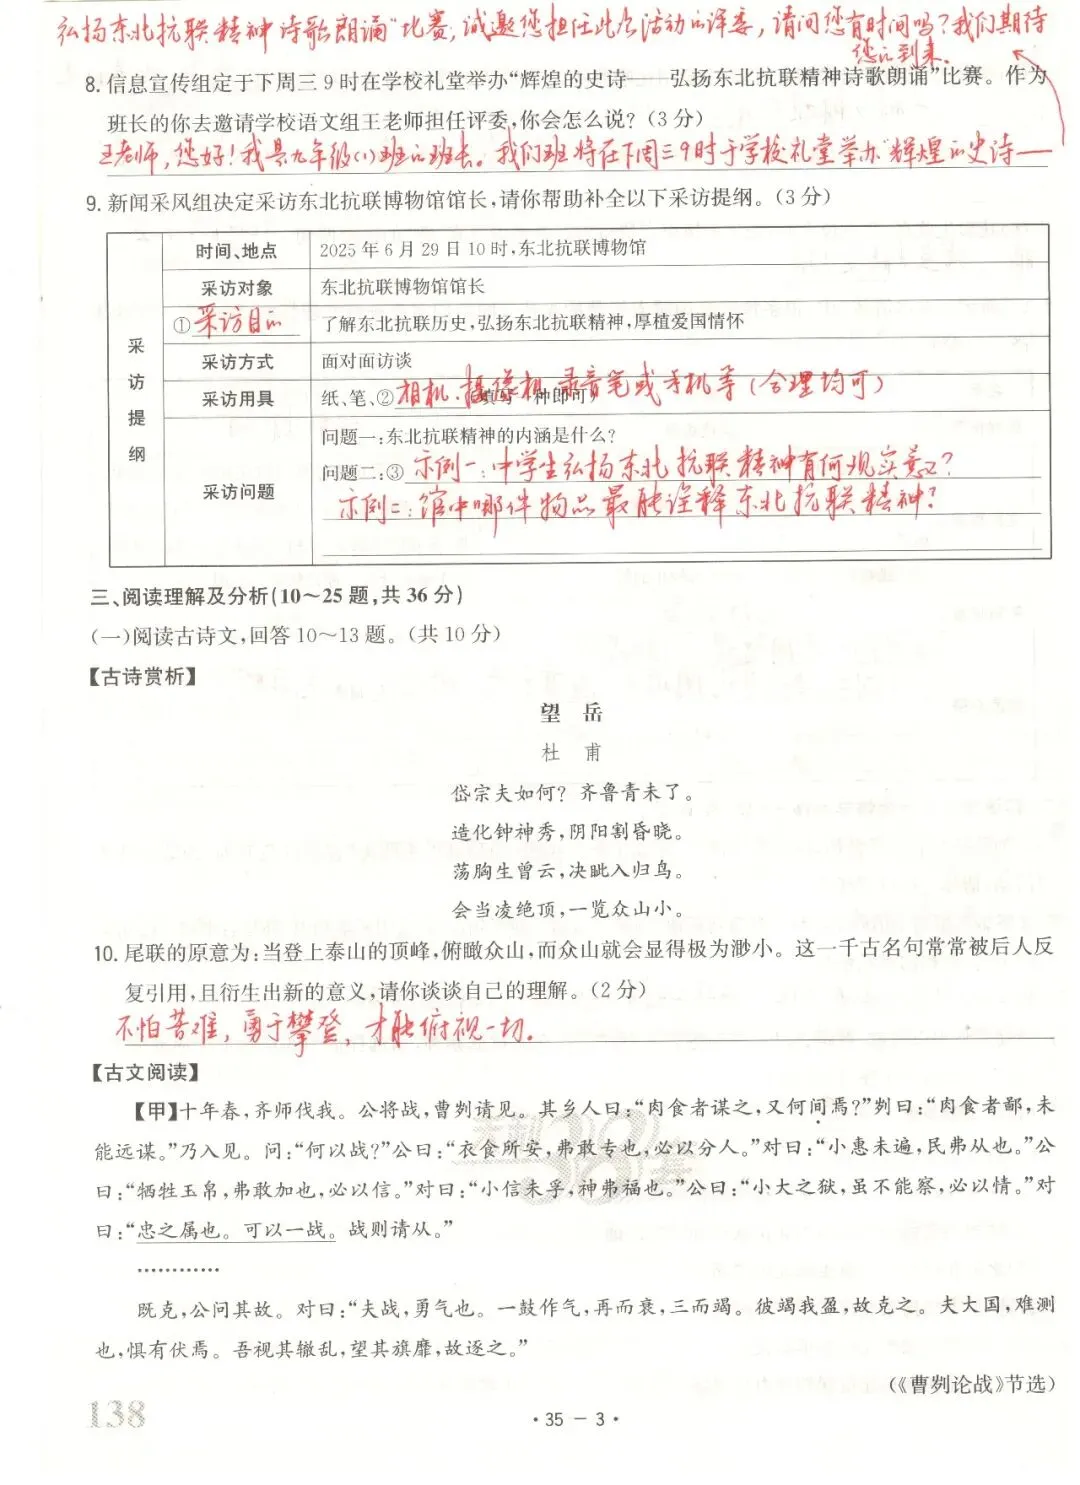 弘扬东北抗联精神诗歌朗诵”比赛,诚邀您担任此次活动的评委,请问您有时间吗?我们期待
您的到来.
8.信息宣传组定于下周三9时在学校礼堂举办“辉煌的史诗 弘扬东北抗联精神诗歌朗诵”比赛。作为
班长的你去邀请学校语文组王老师担任评委,你会怎么说?(3分)
王老师,您好!我是九年级(1)班的班长。我们班将在下周三9时于学校礼堂举办“辉煌的史诗——
9.新闻采风组决定采访东北抗联博物馆馆长,请你帮助补全以下采访提纲。(3分)
采访提纲
时间、地点 2025年6月29日10时,东北抗联博物馆
采访对象 东北抗联博物馆馆长
①采访目的 了解东北抗联历史,弘扬东北抗联精神,厚植爱国情怀
采访方式 面对面访谈
采访用具 纸、笔、②相机.摄像机.录音笔或手机等(合理均可)
采访问题
问题一:东北抗联精神的内涵是什么?
问题二:③示例一:中学生弘扬东北抗联精神有何现实意义?
示例二:馆中哪件物品最能诠释东北抗联精神?
三、阅读理解及分析(10~25题,共36分)
(一)阅读古诗文,回答10~13题。(共10分)
【古诗赏析】
望 岳
杜 甫
岱宗夫如何?齐鲁青未了。
造化钟神秀,阴阳割昏晓。
荡胸生曾云,决眦入归鸟。
会当凌绝顶,一览众山小。
10.尾联的原意为:当登上泰山的顶峰,俯瞰众山,而众山就会显得极为渺小。这一千古名句常常被后人反
复引用,且衍生出新的意义,请你谈谈自己的理解。(2分)
不怕苦难,勇于攀登,才能俯视一切.
【古文阅读】
【甲】十年春,齐师伐我。公将战,曹刿请见。其乡人曰:“肉食者谋之,又何间焉?”刿曰:“肉食者鄙,未
能远谋。”乃入见。问:“何以战?”公曰:“衣食所安,弗敢专也,必以分人。”对曰:“小惠未遍,民弗从也。”公
曰:“牺牲玉帛,弗敢加也,必以信。”对曰:“小信未孚,神弗福也。”公曰:“小大之狱,虽不能察,必以情。”对
曰:“忠之属也。可以一战。战则请从。”
…………
既克,公问其故。对曰:“夫战,勇气也。一鼓作气,再而衰,三而竭。彼竭我盈,故克之。夫大国,难测
也,惧有伏焉。吾视其辙乱,望其旗靡,故逐之。”
(《曹刿论战》节选)
138
·35－3·